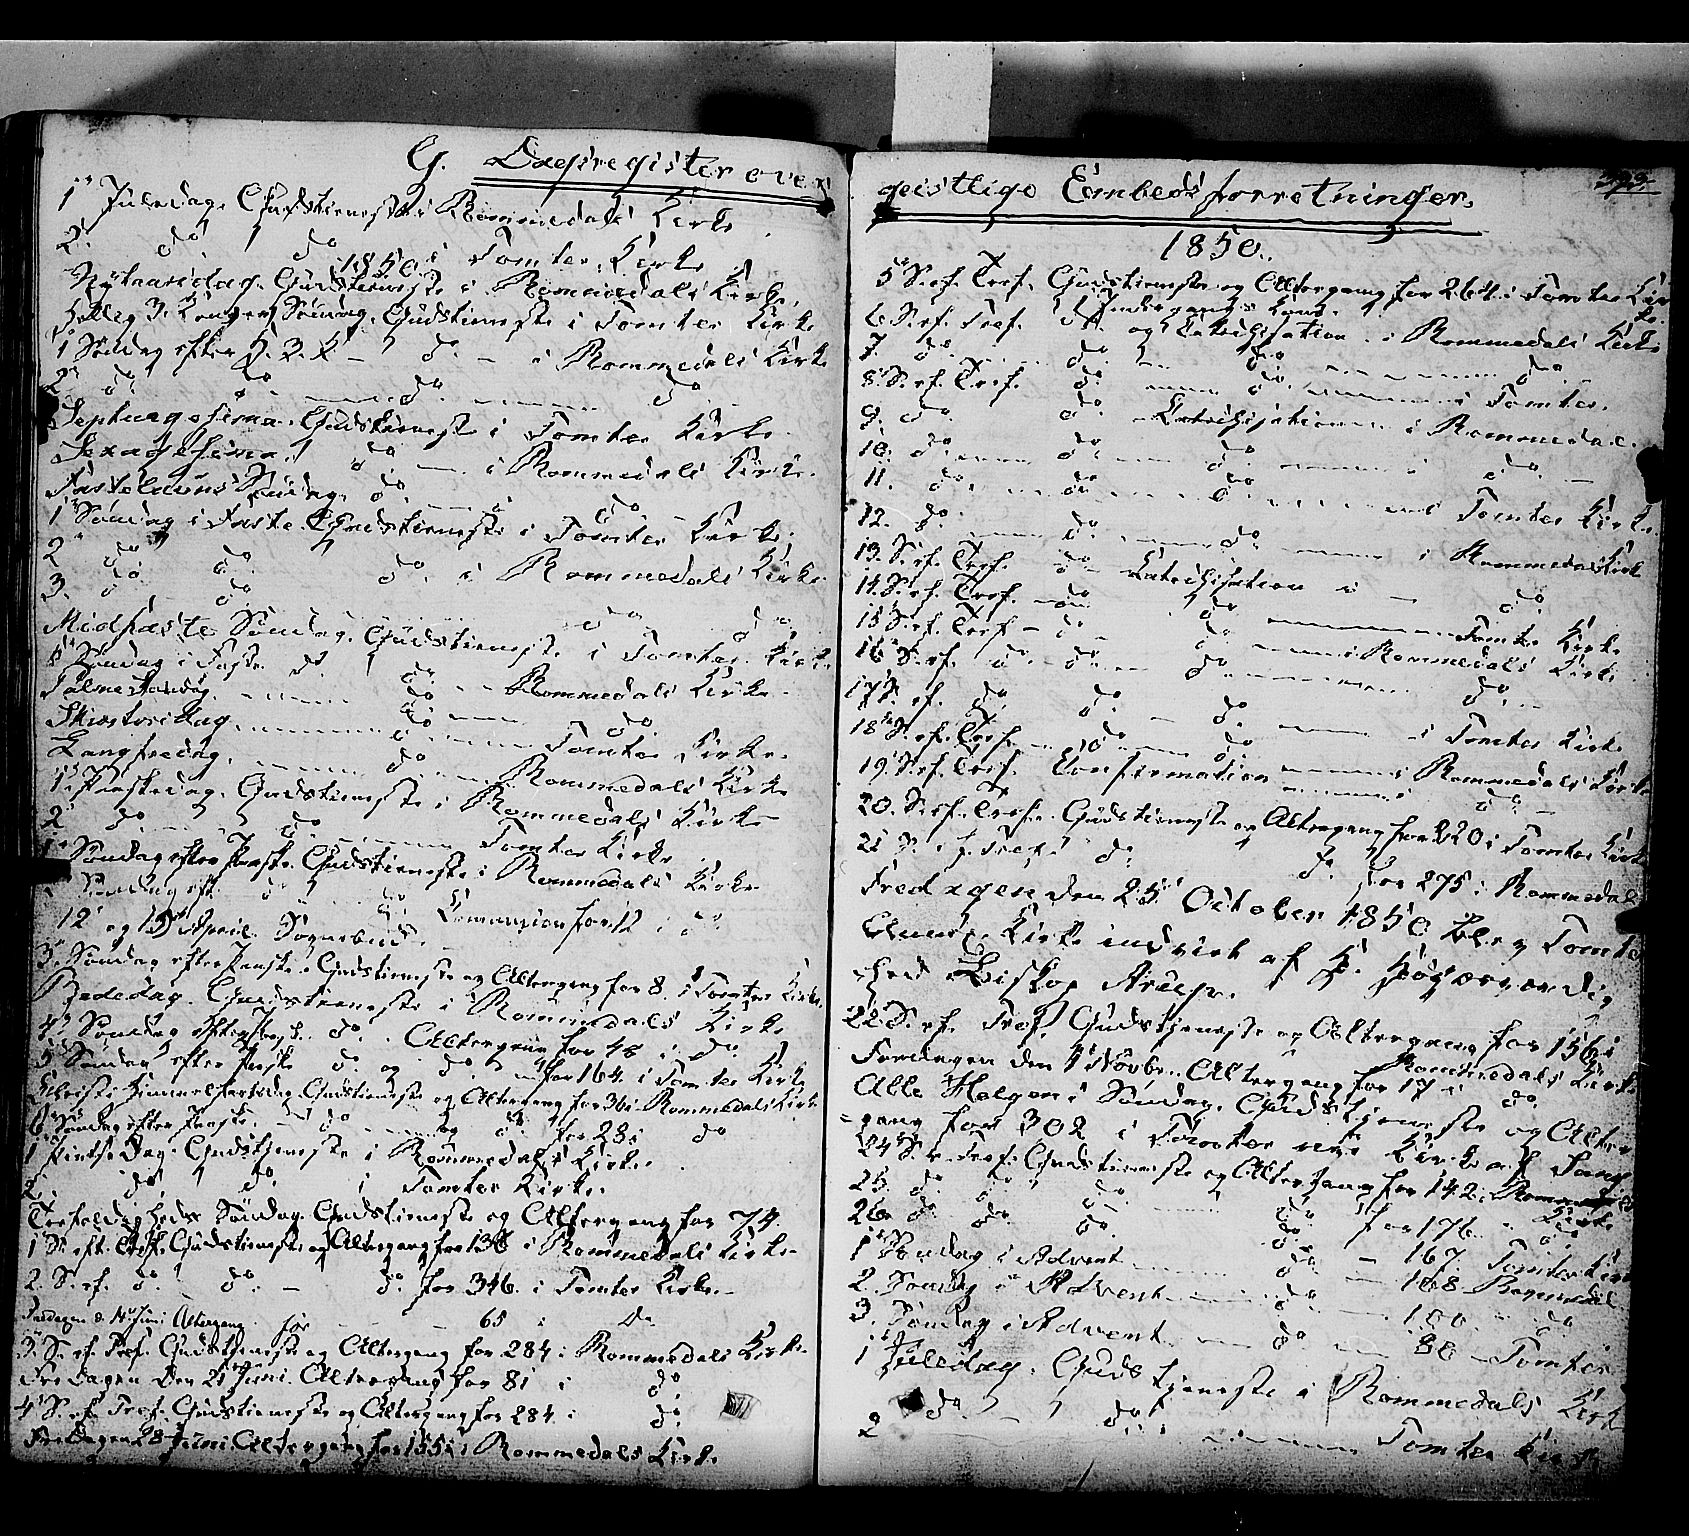 G. Dagsregister over
1ste Juledag. Gudstieneste i Rommedals Kirke
2. do do i Tomter Kirke
1850.
Nytaarsdag. Gudstieneste i Rommedals Kirke.
Hellig 3 Konger Søndag. Gudstieneste i Tomter Kirke
1 Søndag efter H. 3. K. — do. — i Rommedals Kirke
2 do. do. do. do.
Septuagesima. Gudstieneste i Tomter Kirke.
Sexagesima. do — i Rommedals Kirke.
Fastelauns Søndag. do do
1 Søndag i Faste. Gudstieneste i Tomter Kirke.
2 do do. do. i Rommedals Kirke.
3. do. do do do
Midfaste Søndag. Gudstieneste i Tomter Kirke
5 Søndag i Faste do do. Rommedals Kirke.
Palme Søndag do do.
Skiærtorsdag do Tomter Kirke.
Langfredag. do. Rommedals Kirke
1 Paaskedag. Gudstieneste i Rommedals Kirke
2 do do Tomter Kirke
1 Søndag efter Paaske. Gudstieneste i Rommedals Kirke.
2 Søndag eft. do do Communion for 12 i do
12 og 15 April. Sognebud.
3. Søndag efter Paaske. Gudstieneste og Altergang for 8. i Tomter Kirke.
Bededag. Gudstieneste i Rommedals Kirke
4 Søndag efter Paaske. do. Altergang for 48 i do.
5 Søndag efter Paaske do. og do for 164. i Tomter Kirke
Christi Himmelfartsdag. Gudstieneste og Altergang for 36 i Rommedals Kirke
6 Søndag efter Paaske. — do og do. for 28 i do
1 Pintse Dag. Gudstjeneste i Rommedals Kirke.
2. do do. i Tomter Kirke.
Trefoldigheds Søndag. Gudstieneste og Altergang for 74.
1 S. eft. Tref. Gudstieneste og Altergang for 136 i Rommedals Kirke.
2. S. ef. do. do. — do. for 346. i Tomter Kirke.
Fredagen d. 14 Juni Altergang for 65 i do.
3. S. ef. Tref. Gudstjeneste og Altergang for 284 i Rommedals Kirke.
Fredagen den 21 Juni. Altergang for 81 i do
4 S. ef. Tref. Gudstieneste og Altergang for 284. i do.
Fredagen 28 Juni Altergang for 155 i Rommedals Kirke.
geistlige Embedsforretninger.
1850.
5 S. ef. Tref. Gudstieneste og Altergang for 264. i Tomter Kirke.
6 S. ef. Tref. do. og Catechisation. i Rommedals Kirke
7. do. do. do. do.
8. S. ef. Tref. do. do. i Tomter.
9. do. do. Catechisation i Rommedal.
10. do. do. do. i do
11. do. do. do. Tomter Kirke
12. do. do. do. i Rommedals Kirk
13. S. ef. Tref. do Catechisation i — do
14. S. ef. Tref. — do do Tomter Kirke
15 S. ef. Tref — do. do. i Rommedals Kirke
16 S. ef. do. do. do. do.
17 S. ef. do. do. — do. — i Tomter Kirke
18 S. ef. Tref. do do i Rommedals Kirke
19. S. ef. Tref. Confirmation i do
20. S. ef. Tref. Gudstieneste og Altergang for 220 i Tomter Kirke
21 S. ef. Tref. do. do. for 275 i Rommedal
Fredagen den 25 October 1850 blev Tomter
Kirke indviet af H. Høiærværdig
-hed Biskop Arup.
22. S. ef. Tref. Gudstjeneste og Altergang for 156 i Rommedals Kirke
Fredagen den 1 Novbr. Altergang for 17 i do
Alle Helgens Søndag. Gudstjeneste og Alter
-gang for 302 i Tomter nye Kirke
24 S. e. Tref. Gudstieneste og Altergang for 142 i Rommedals Kirke
25. do do do do for 176. do.
26 do do. do. do. — 167. Tomter Kirke
1 Søndag i Advent do — 168 Rommedal
2. Søndag i Advent do. — 100 do
3. Søndag i Advent do 86 Tomter
1 Juledag. Gudstjeneste i Rommedals Kirk
2 do. — do. Tomter Kirke